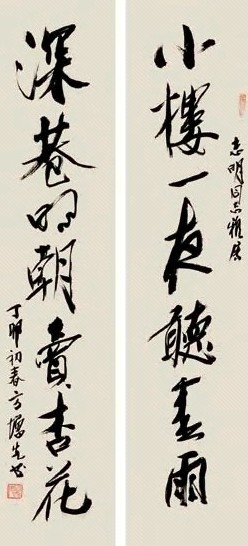 小樓一夜聽春雨
志明同志雅属
深巷明朝賣杏花
丁卯初春